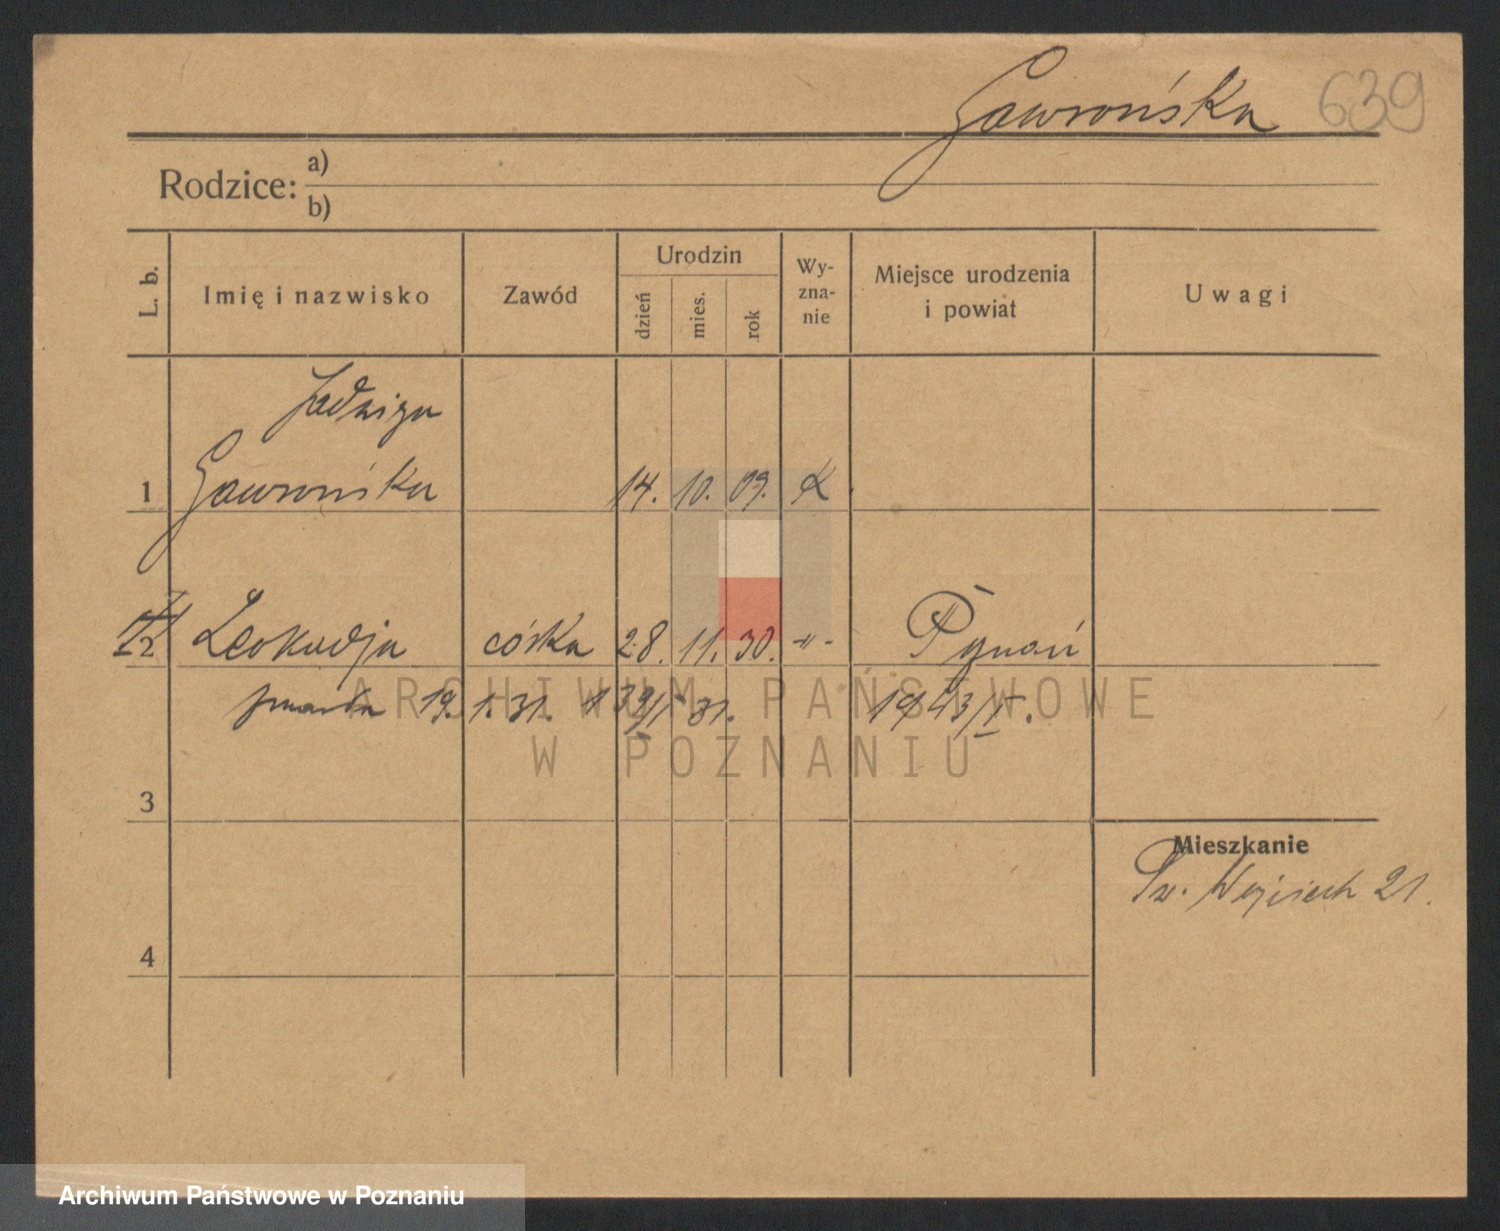 Gawrońska 639
Rodzice: a)
b)
L. b.
Imię i nazwisko
Zawód
Urodzin
dzień
mies.
rok
Wy-
zna-
nie
Miejsce urodzenia
i powiat
Uwagi
Jadwiga
1 Gawrońska 14. 10. 09. K
2 Leokadja córka 28. 11. 30. -"- Poznań
zmarła 19. 1. 31.
ARCHIWUM PAŃSTWOWE
W POZNANIU
3
Mieszkanie
Św. Wojciech 21.
4
Archiwum Państwowe w Poznaniu